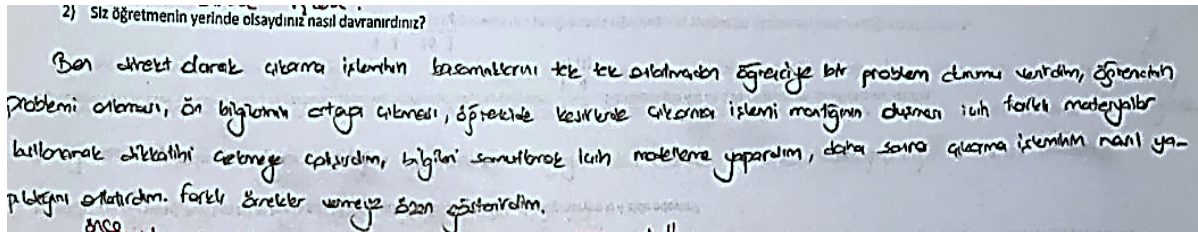 2) Siz öğretmenin yerinde olsaydınız nasıl davranırdınız?
Ben direkt olarak çıkarma işleminin basamaklarını tek tek anlatmadan öğrenciye bir problem durumu verirdim, öğrencinin
problemi anlaması, ön bilgilerinin ortaya çıkması, öğrencide kesirlerde çıkarma işlemi mantığının oluşması için farklı materyaller
kullanarak dikkatini çekmeye çalışırdım, bilgileri somutlamak için modelleme yapardım, daha sonra çıkarma işleminin nasıl ya-
pıldığını anlatırdım. Farklı örnekler vermeye özen gösterirdim.
önce